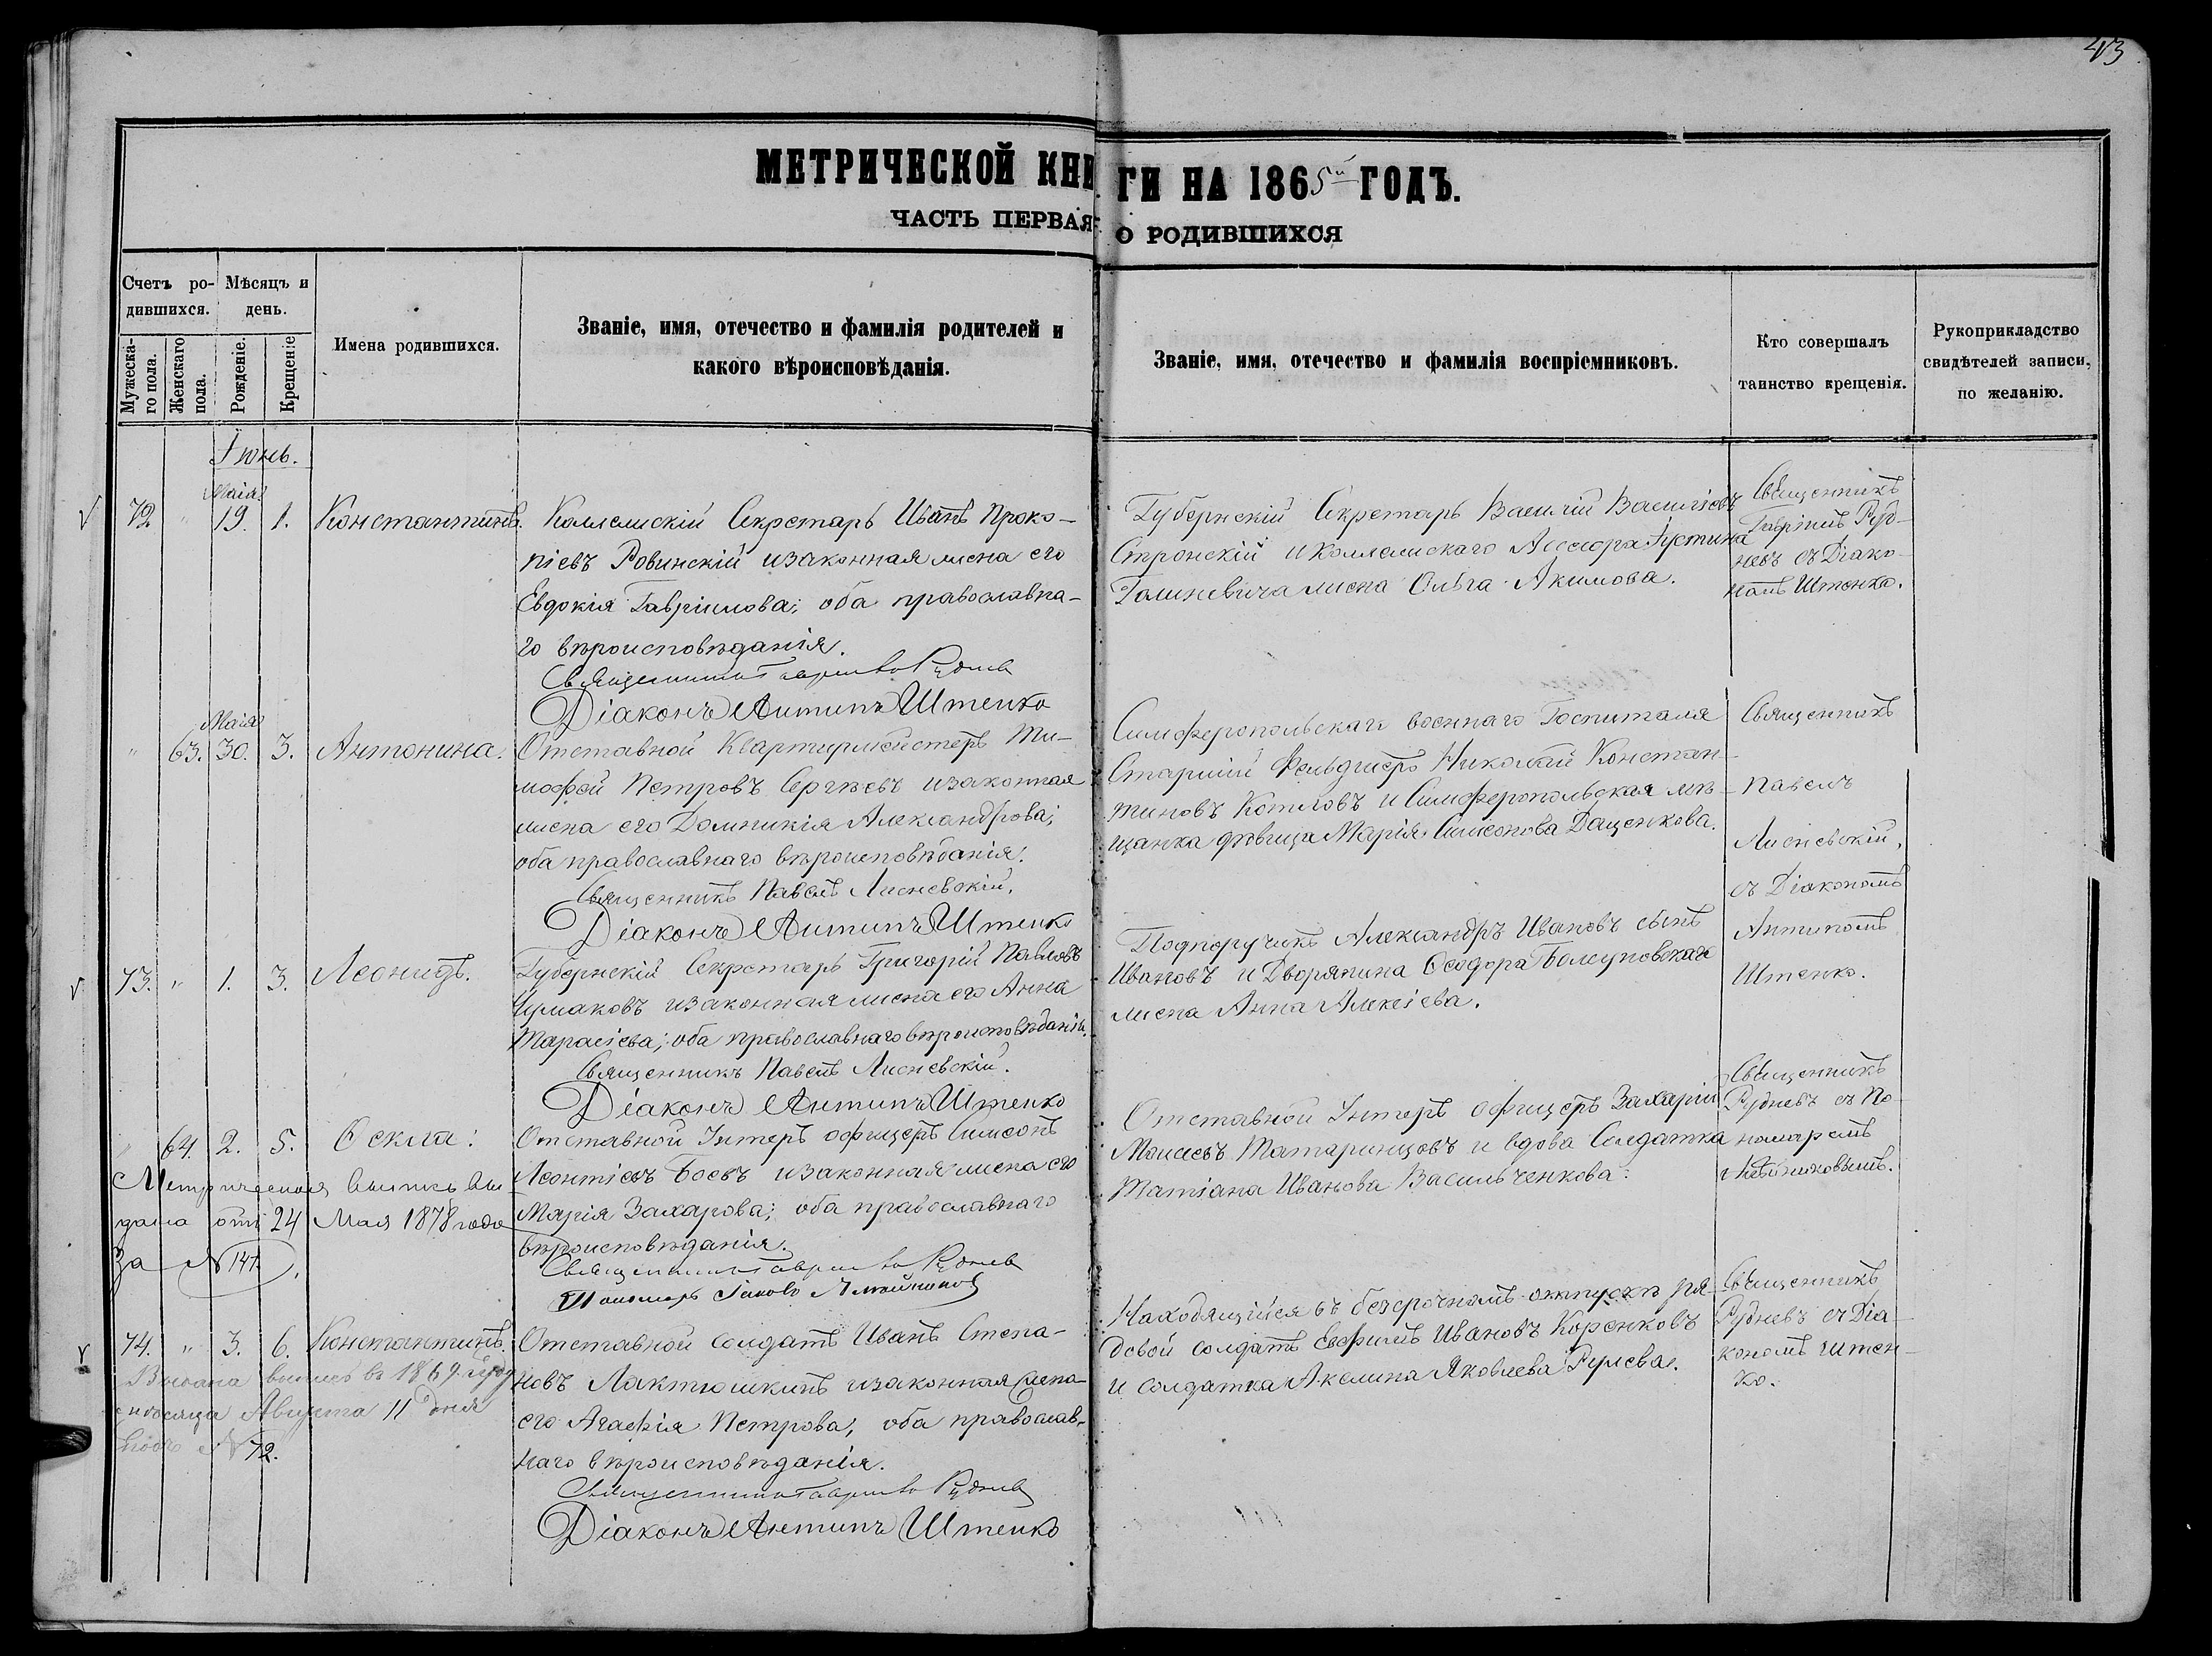 43
МЕТРИЧЕСКОЙ КНИГИ НА 1865й ГОДЪ.
ЧАСТЬ ПЕРВАЯ О РОДИВШИХСЯ
Счетъ родившихся.
Мужескаго пола.
Женскаго пола.
Мѣсяцъ и день.
Рожденіе.
Крещеніе
Имена родившихся.
Званіе, имя, отечество и фамилія родителей и
какого вѣроисповѣданія.
Званіе, имя, отечество и фамилія воспріемниковъ.
Кто совершалъ
таинство крещенія.
Рукоприкладство
свидѣтелей записи,
по желанію.
Іюнь.
Маія
72 " 19. 1. Константинъ.
Коллежскій Секретарь Иванъ Проко-
піевъ Ровинскій и законная жена его
Евдокія Гавріилова; оба православна-
го вѣроисповѣданія.
Священникъ Гавріилъ Рудневъ
Діаконъ Антипъ Штенко
Губернскій Секретарь Василій Василіевъ
Стронскій и Коллежскаго Ассесора Іустина
Галиневича жена Ольга Акимова.
Священникъ
Гавріилъ Руд-
невъ съ Діако-
номъ Штенко.
Маія
" 63. 30. 3. Антонина.
Отставной Квартирмейстеръ Ти-
мофей Петровъ Сергѣевъ и законная
жена его Домникія Александрова;
оба православнаго вѣроисповѣданія.
Священникъ Павелъ Лисневскій.
Діаконъ Антипъ Штенко
Симферопольскаго военнаго Госпиталя
Старшій Фельдшеръ Николай Констан-
тиновъ Котловъ и Симферопольская мѣ-
щанка дѣвица Марія Симеонова Даценкова.
Священникъ
Павелъ
Лисневскій,
съ Діакономъ
Антипомъ
Штенко.
73. " 1. 3. Леонидъ.
Губернскій Секретарь Григорій Павловъ
Чумаковъ и законная жена его Анна
Тарасіева; оба православнаго вѣроисповѣданія.
Священникъ Павелъ Лисневскій.
Діаконъ Антипъ Штенко
Подпоручикъ Александръ Ивановъ сынъ
Ивановъ и Дворянина Ѳеодора
жена Анна Алексіева.
" 64. 2. 5. Ѳекла.
Отставной Унтеръ офицеръ Симеонъ
Леонтіевъ Боевъ и законная жена его
Марія Захарова; оба православнаго
вѣроисповѣданія.
Священникъ Гавріилъ Рудневъ
Пономарь Іаковъ
Отставной Унтеръ офицеръ Захарій
Моисеевъ Татаринцовъ и вдова Солдатка
Татіана Иванова Васильченкова.
Священникъ
Рудневъ съ По-
номаремъ
Метрическая выпись вы-
дана отъ 24 Мая 1878 года
За № 147.
74. " 3. 6. Константинъ.
Отставной солдатъ Иванъ Степа-
новъ Лактюшкинъ и законная жена
его Агафія Петрова; оба православ-
наго вѣроисповѣданія.
Священникъ Гавріилъ Рудневъ
Діаконъ Антипъ Штенко
Находящійся въ безсрочномъ отпускѣ ря-
довой солдатъ Евфимъ Ивановъ Коренковъ
и солдатка Акелина Яковлева Рулева.
Священникъ
Рудневъ съ Діа-
кономъ Штен-
ко.
Выдана выпись въ 1869 году
мѣсяца Августа 11 дня
подъ № 72.